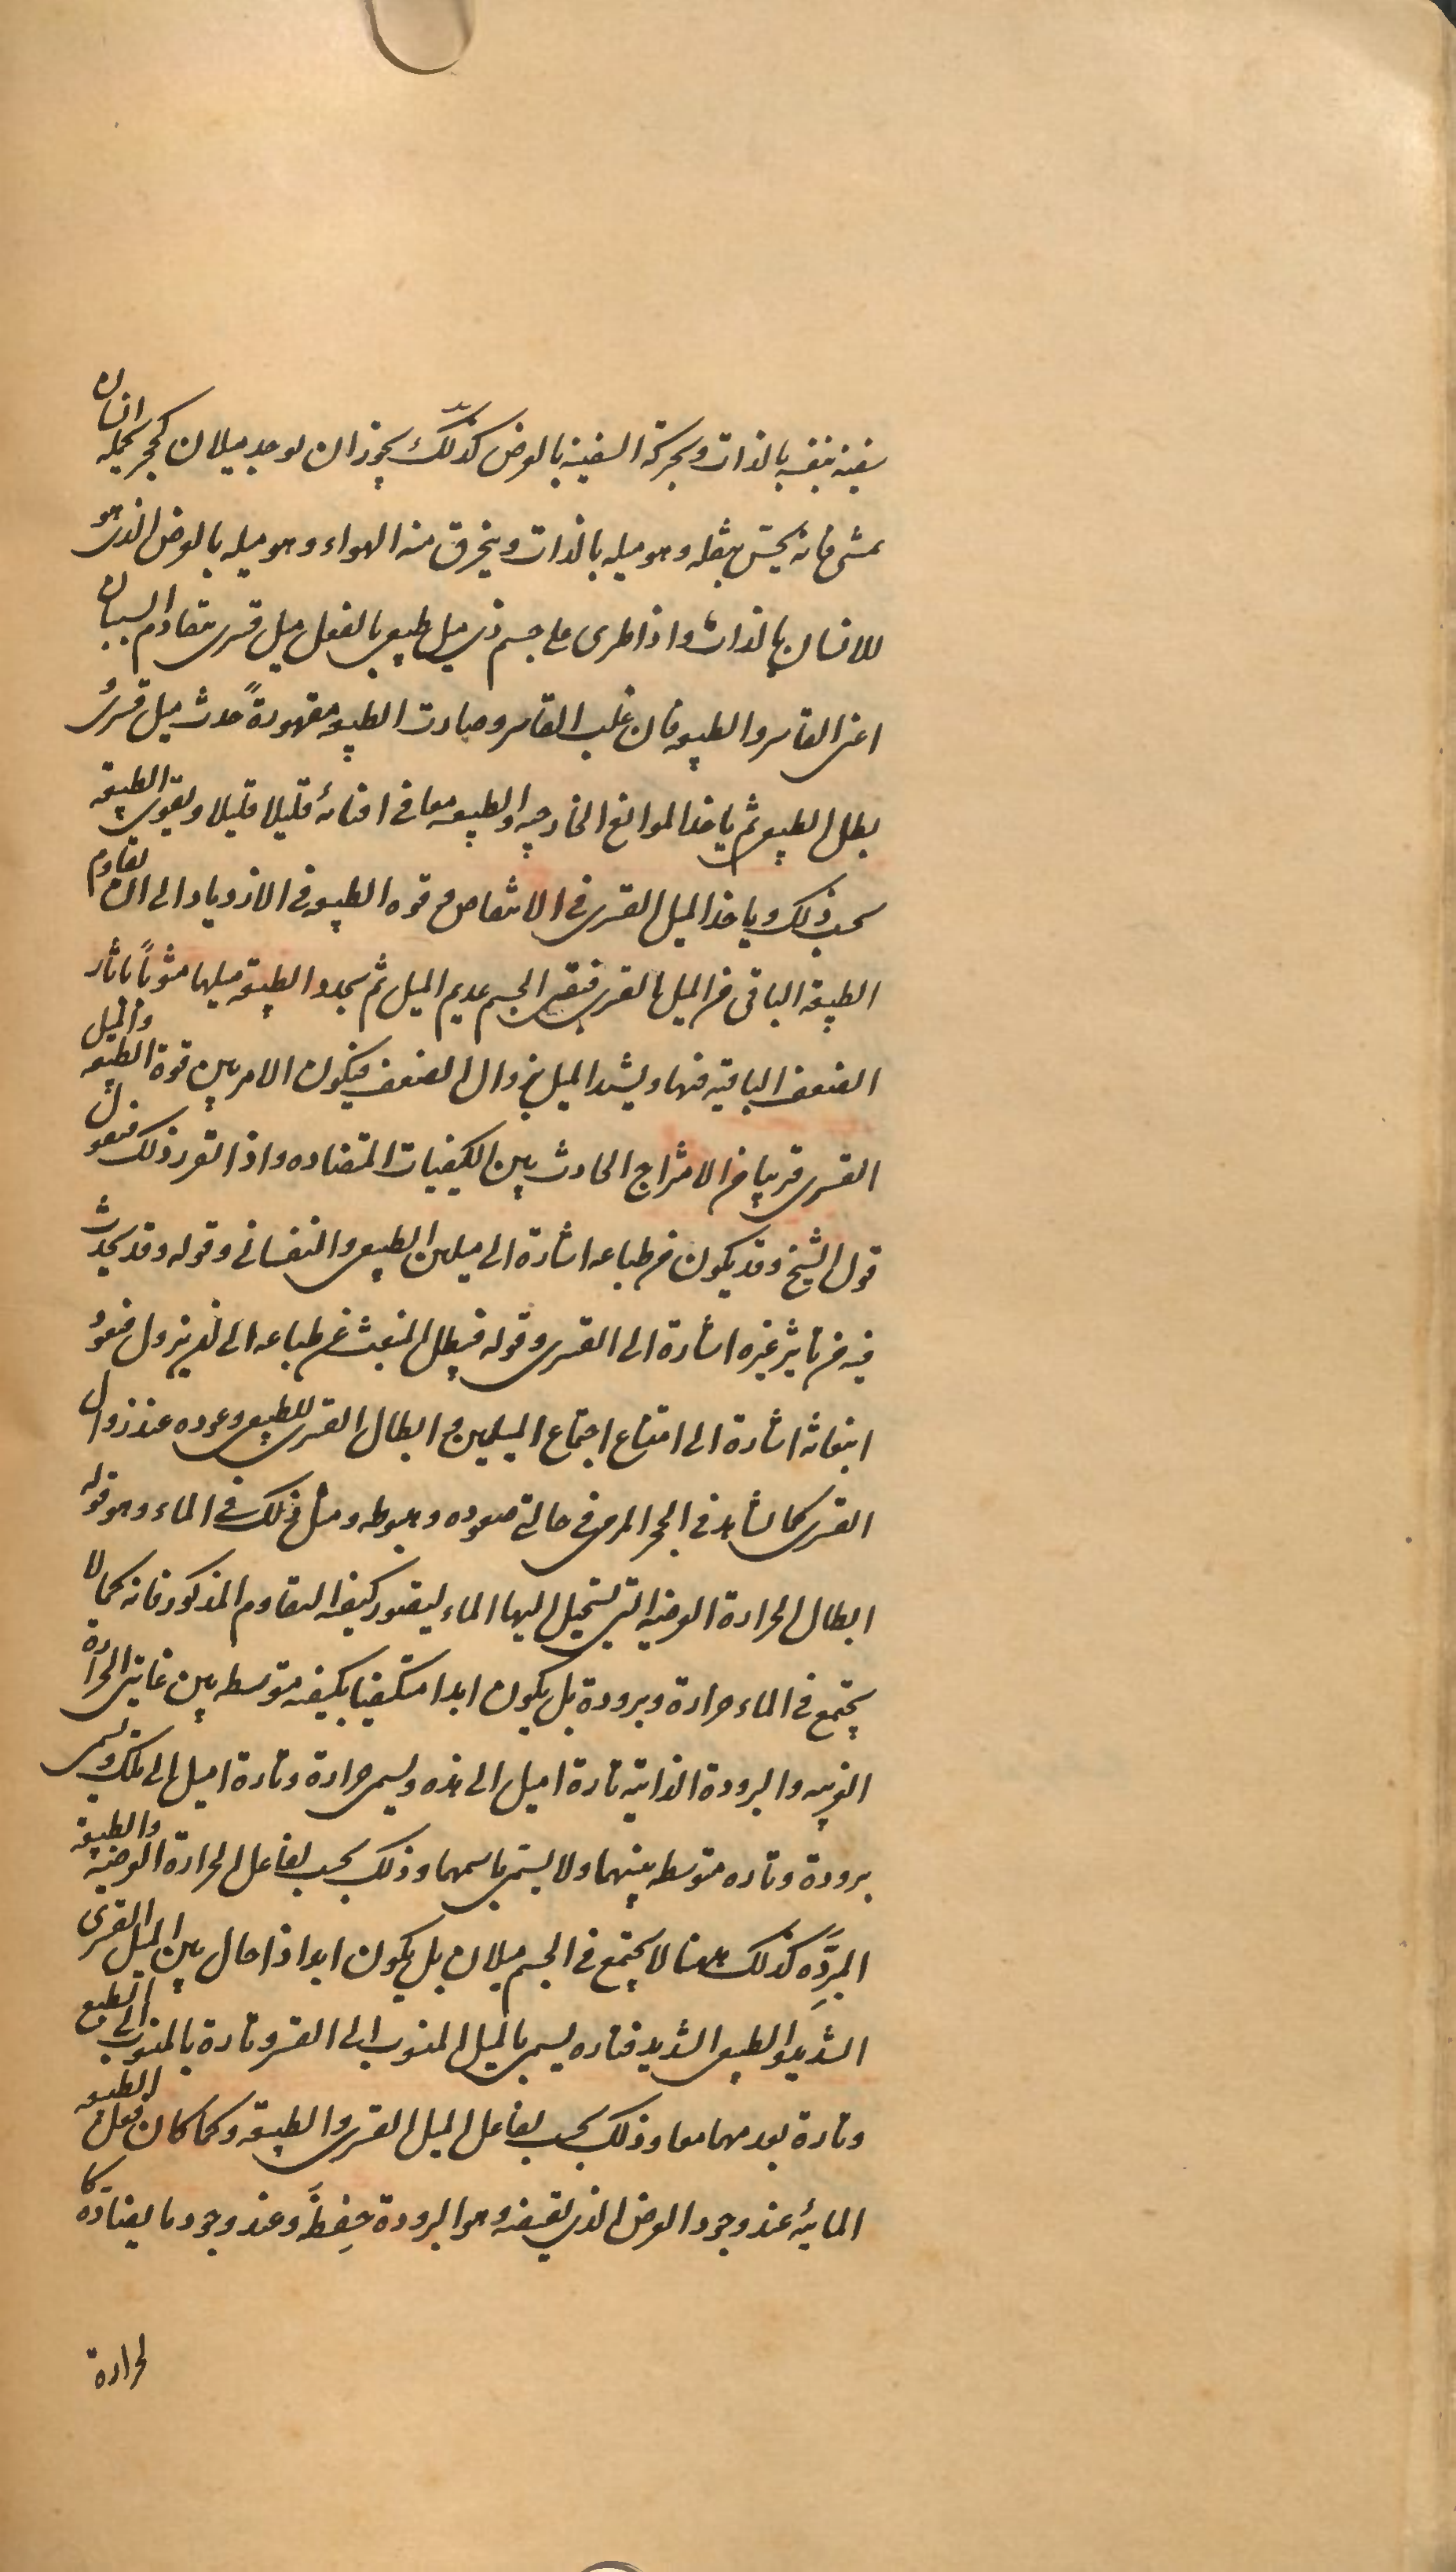 سفينة بنفسه بالذات وبحركة السفينة بالعرض كذلك يجوز ان يوجد ميلان كحجر يحمله انسان
يمشى فانه يحس بثقله وهو ميله بالذات وينخرق منه الهواء وهو ميله بالعرض الذى هو
للانسان بالذات واذا طرى على جسم ذى ميل طبيعى بالفعل ميل قسرى تقاوم السببان
اعنى القاسر والطبيعة فان غلب القاسر وصارت الطبيعة مقهورةً حدث ميل قسرىٌ
بطل الطبيعى ثم ياخذ الموانع الخارجية والطبيعة معا فى افنائه قليلا قليلا ويقوى الطبيعة
بحسب ذلك وياخذ الميل القسرى فى الانتقاص وقوة الطبيعة فى الازدياد الى ان تقاوم
الطبيعة الباقى من الميل القسرى فيبقى الجسم عديم الميل ثم يجدد الطبيعة ميلها مشوباً باثار
الضعف الباقية فيها ويشتد الميل بزوال الضعف فيكون الامر بين قوة الطبيعة والميل
القسرى قريبا من الامتزاج الحادث بين الكيفيات المتضادة واذا تقرر ذلك فنقول
قول الشيخ وقد يكون من طباعه اشارة الى ميلين الطبيعى والنفسانى وقوله وقد يحدث
فيه من تاثير غيره اشارة الى القسرى وقوله فيبطل المنبعث عن طباعه الى ان يزول فيعود
انبعاثه اشارة الى امتناع اجتماع الميلين وابطال القسرى للطبيعى وعوده عند زوال
القسرى كما يشاهد فى الحجر المرمى فى حالتى صعوده وهبوطه ومثل ذلك فى الماء وهو قوله
ابطال الحرارة العرضية التى يستحيل اليها الماء ليتصور كيفية التقاوم المذكور فانه كما لا
يجتمع فى الماء حرارة وبرودة بل يكون ابدا متكيفا بكيفية متوسطة بين غايتى الحرارة
الغريبة والبرودة الذاتية تارة اميل الى هذه ويسمى حرارة وتارة اميل الى تلك ويسمى
برودة وتارة متوسطة بينهما ولا يسمى باسمهما وذلك بحسب تفاعل الحرارة العرضية والطبيعة
المبرِّدة كذلك ههنا لا يجتمع فى الجسم ميلان بل يكون ابدا ذا حال بين الميل القسرى
الشديد والطبيعى الشديد فتارة يسمى بالميل المنسوب الى القسر وتارة بالمنسوب الى الطبع
وتارة بعدمهما معا وذلك بحسب تفاعل الميل القسرى والطبيعة وكما كان فعل الطبيعة
المائية عند وجود العرض الذى يقتضيه وهو البرودة حِفظَه وعند وجود ما يضاده كا
لحرارة